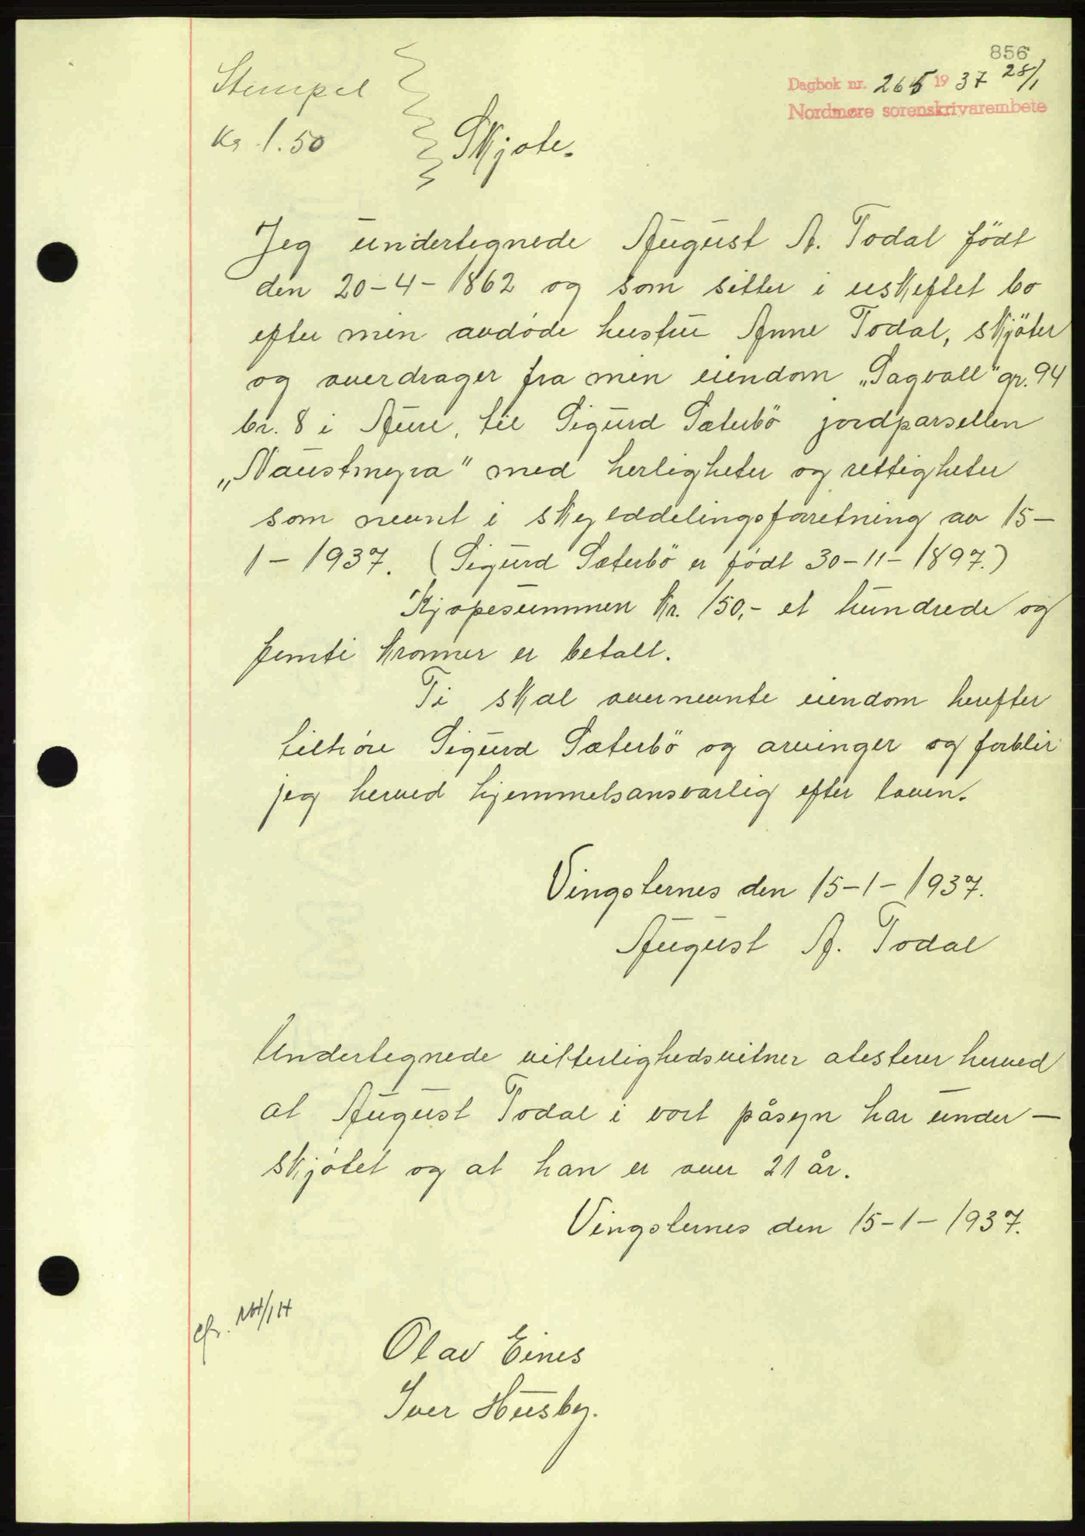 856
Dagbok nr. 265 1937 28/1
Nordmøre sorenskrivarembete
Stempel
Kr 1.50
Skjøte.
Jeg undertegnede August A. Todal født
den 20-4-1862 og som sitter i uskiftet bo
efter min avdøde hustru Anne Todal, skjøter
og overdrager fra min eiendom „Sagvall" gr. 94
br. 8 i Aure, til Sigurd Sæterbö jordparsellen
„Naustmyra" med herligheter og rettigheter
som nevnt i skylddelingsforretning av 15-
1-1937. (Sigurd Sæterbö er født 30-11-1897.)
Kjøpesummen kr. 150,- et hundrede og
femti kroner er betalt.
Ti skal overnevnte eiendom herefter
tilhøre Sigurd Sæterbö og arvinger og forblir
jeg herved hjemmelsansvarlig efter loven.
Vingsternes den 15-1-1937.
August A. Todal
Undertegnede vitterlighedsvitner atesterer herved
at August Todal i vort påsyn har under-
skjøtet og at han er over 21 år.
Vingsternes den 15-1-1937.
cfr.
Olav Eines
Iver Husby.